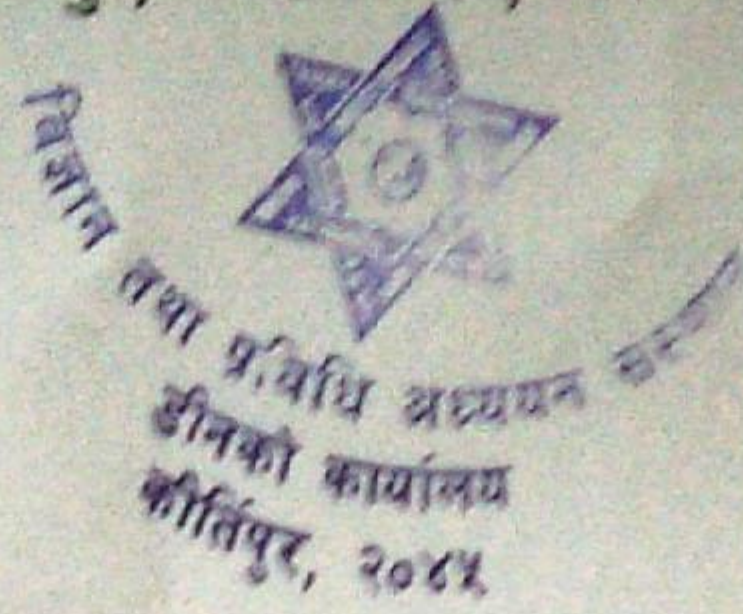 विज्ञान तथा प्रविधि अध्ययन संस्थान
डीनको कार्यालय
कीर्तिपुर, २०४५